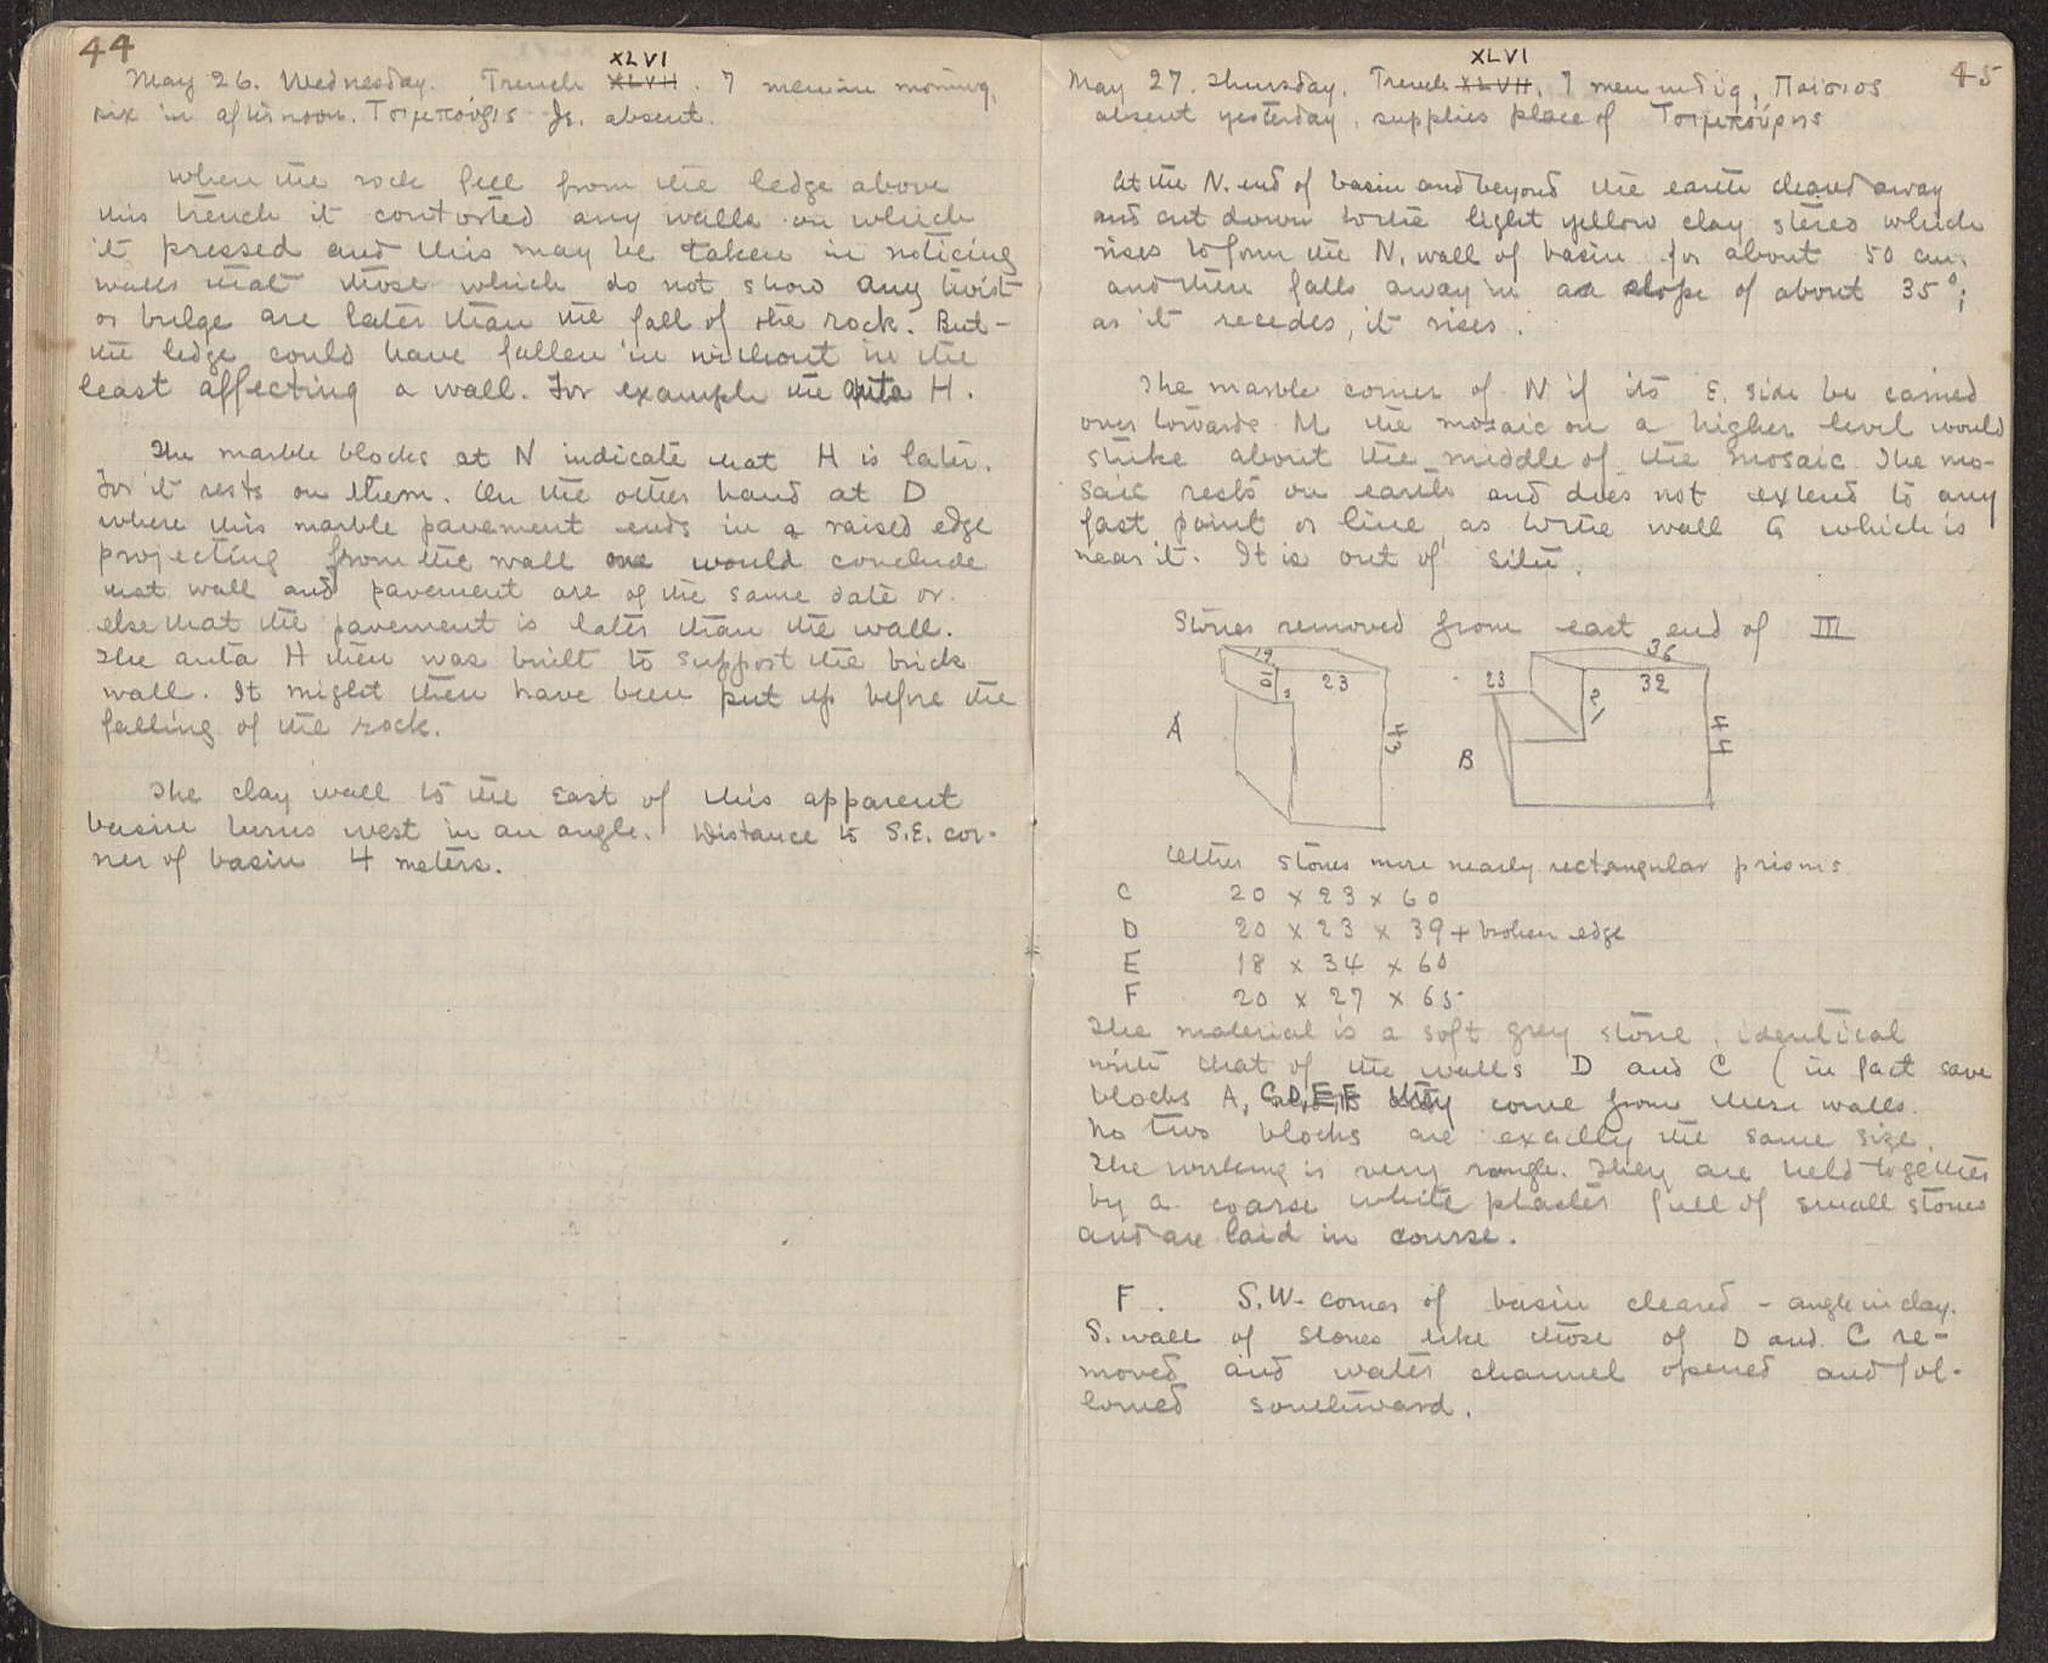 44
XLVI
May 26. Wednesday. Trench XLVII. 7 men in morning,
six in afternoon. Τσιμπούρις Jr. absent.
When the rock fell from the ledge above
this trench it contorted any walls on which
it pressed and this may be taken in noticing
walls that those which do not show any twist
or bulge are later than the fall of the rock. But
the ledge could have fallen in without in the
least affecting a wall. For example the anta H.
The marble blocks at N indicate that H is later.
For it rests on them. On the other hand at D
where this marble pavement ends in a raised edge
projecting from the wall one would conclude
that wall and pavement are of the same date or
else that the pavement is later than the wall.
The anta H then was built to support the brick
wall. It might then have been put up before the
falling of the rock.
The clay wall to the East of this apparent
basin turns west in an angle. Distance to S.E. cor-
ner of basin 4 meters.
45
XLVI
May 27. Thursday. Trench XLVII. 7 men in dig, Παίσιος
absent yesterday, supplies place of Τσιμπούρης
At the N. end of basin and beyond the earth cleared away
and cut down to the light yellow clay stereo which
rises to form the N. wall of basin for about 50 cm.
and then falls away in a slope of about 35°;
as it recedes, it rises.
The marble corner of N if its E. side be carried
over towards M the mosaic on a higher level would
strike about the middle of the mosaic. The mo-
saic rests on earth and does not extend to any
fast point or line, as to the wall G which is
near it. It is out of situ.
Stones removed from east end of III
A 19 10 2 23 43
B 23 36 32 21 44
Other stones more nearly rectangular prisms
C 20 x 23 x 60
D 20 x 23 x 39 + broken edge
E 18 x 34 x 60
F 20 x 27 x 65
The material is a soft grey stone, identical
with that of the walls D and C (in fact save
blocks A, C, D, E, F they come from these walls.
No two blocks are exactly the same size.
The working is very rough. They are held together
by a coarse white plaster full of small stones
and are laid in course.
F. S.W. corner of basin cleared - angle in clay.
S. wall of stones like those of D and C re-
moved and water channel opened and fol-
lowed southward.